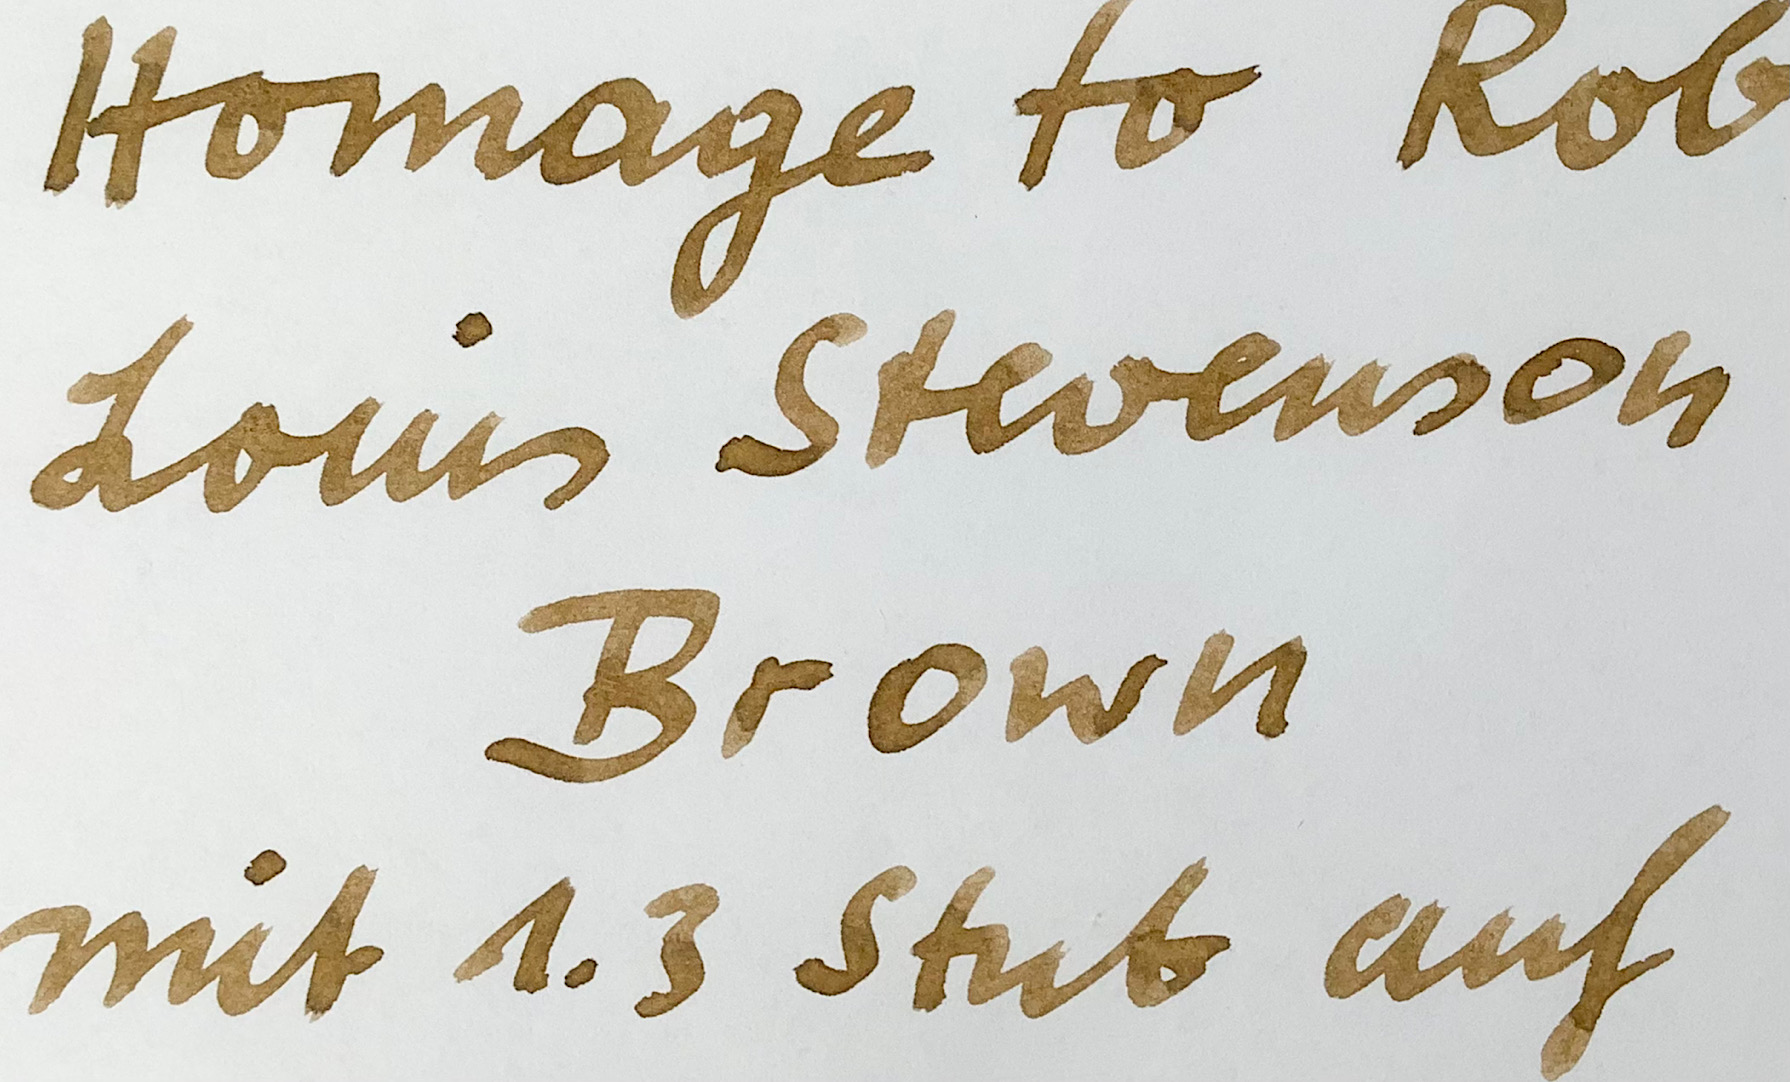 Homage to Rob
Louis Stevenson
Brown
mit 1.3 Stub auf